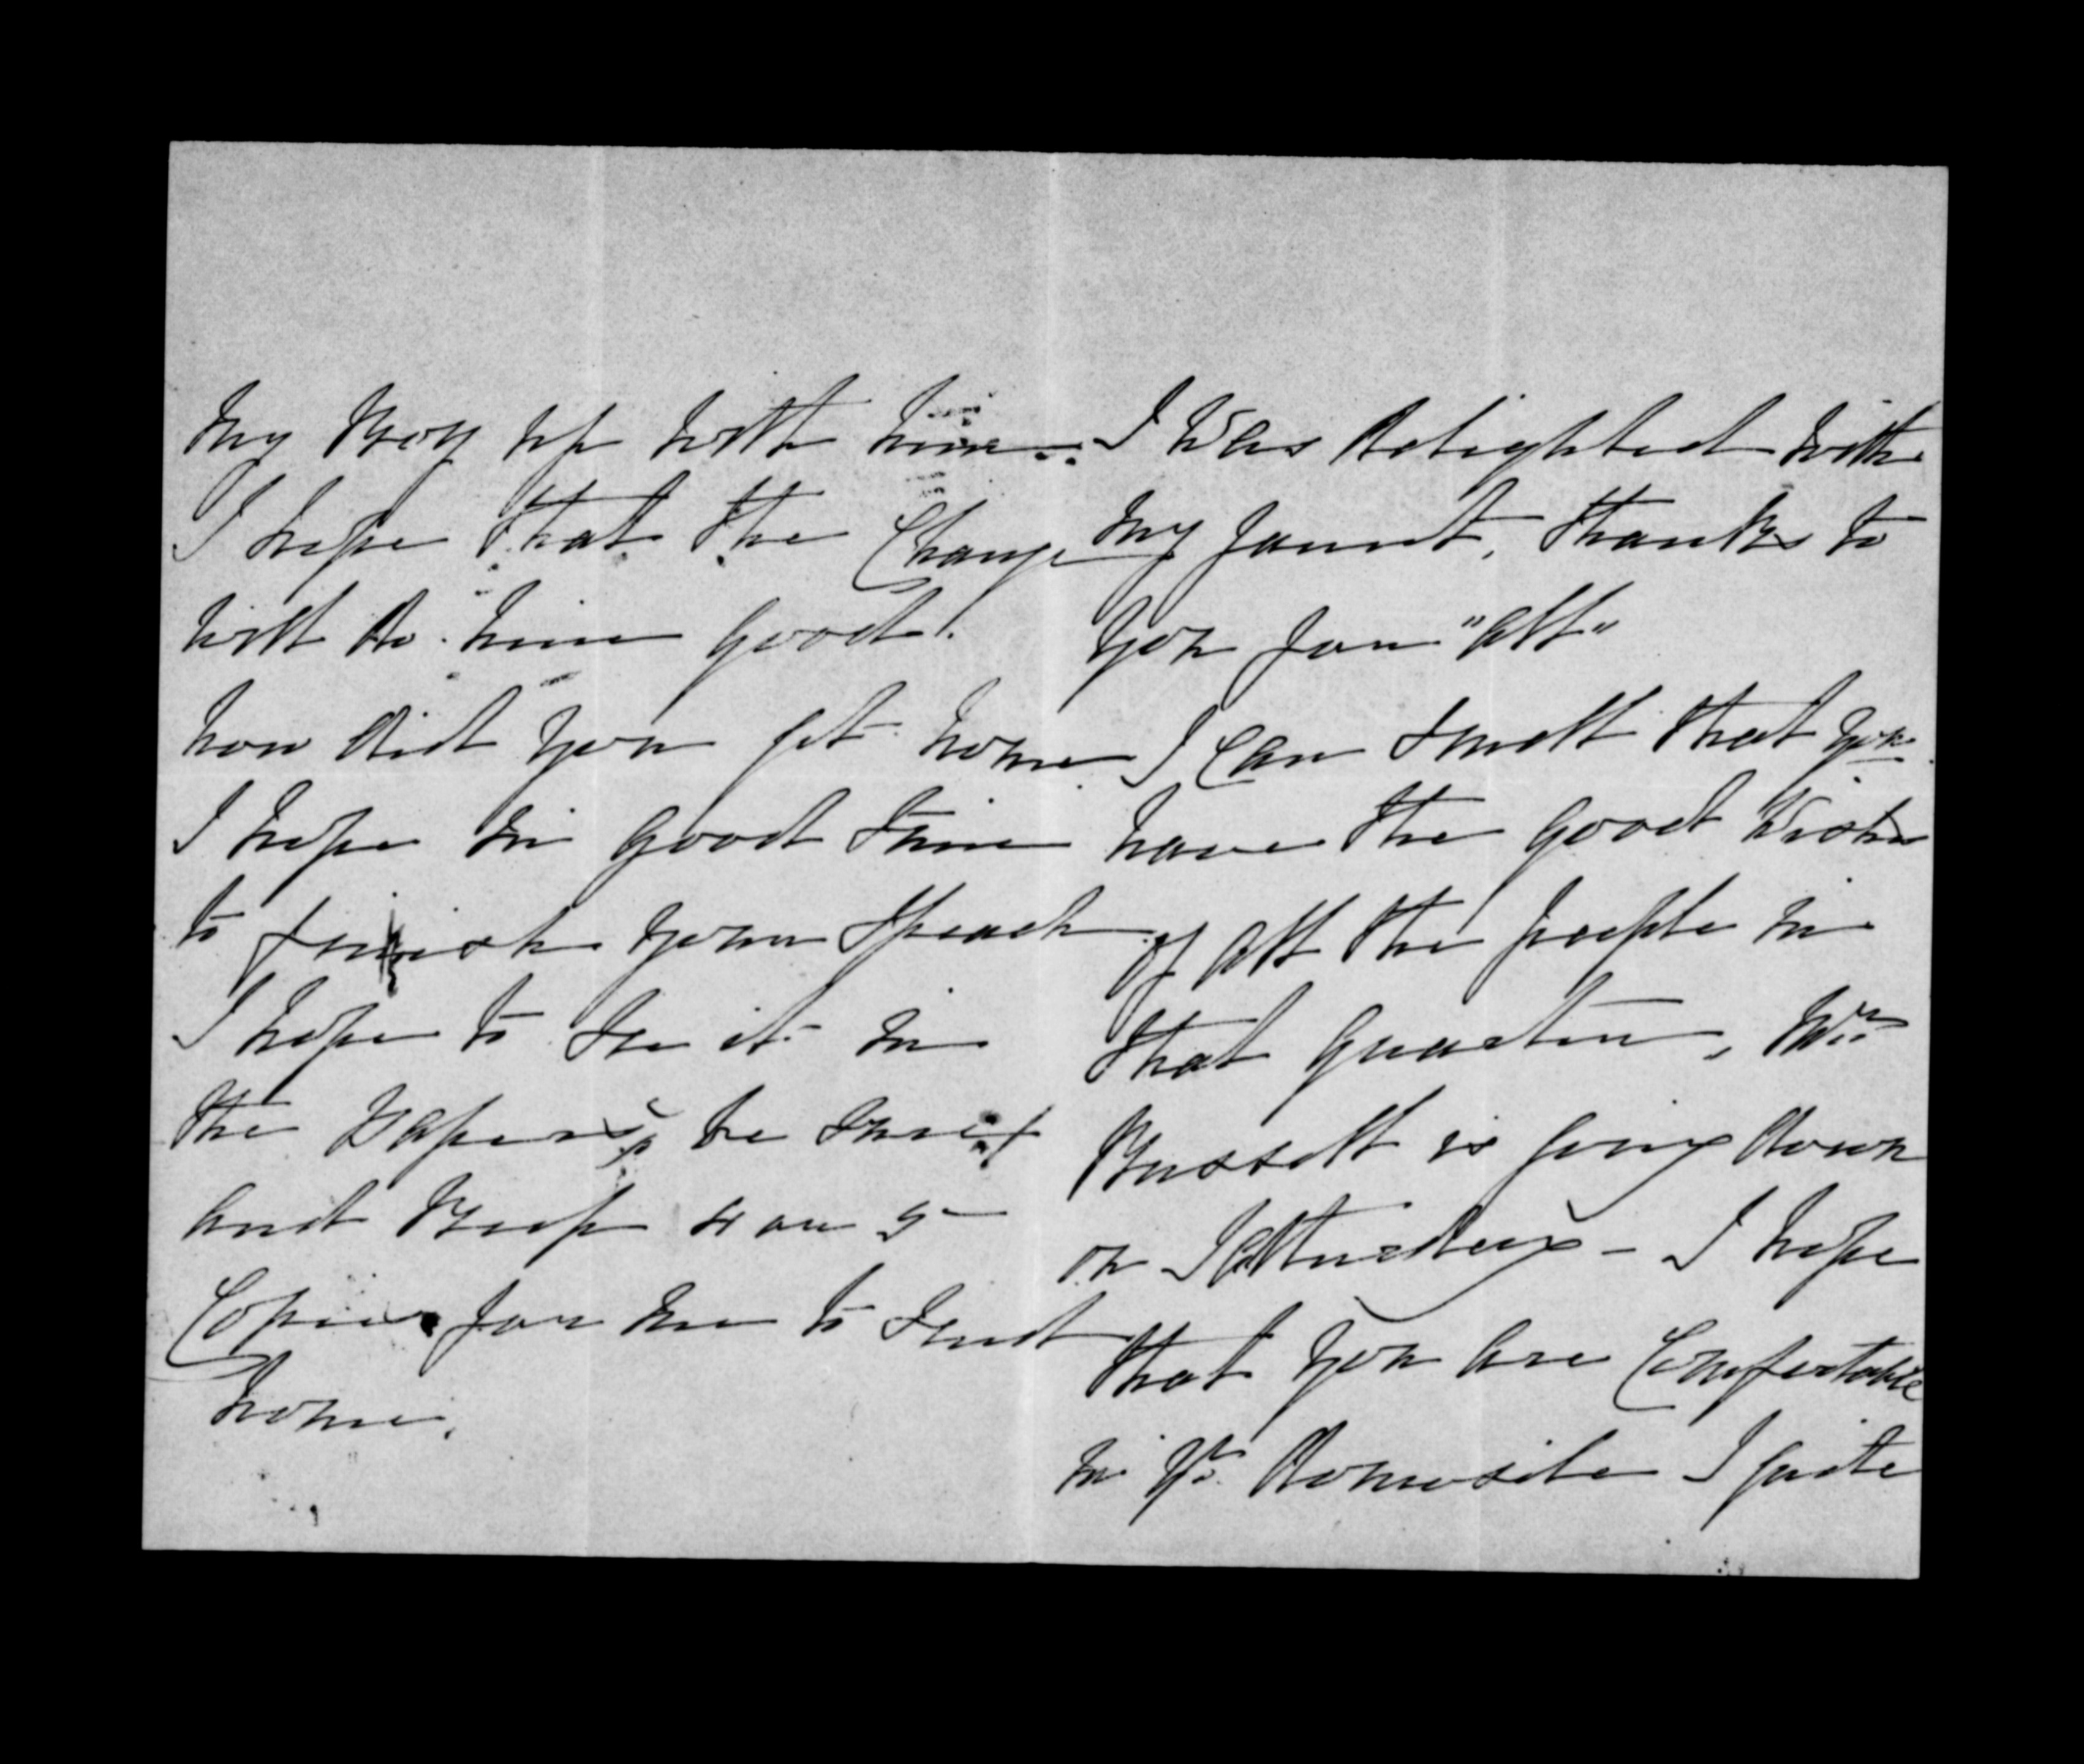 my Boy up with him.
I hope that the Change
will do him good.
how did you get home
I hope in good time
to finish your Speach
I hope to See it in
the Papers, be Sure
and Keep 4 or 5
Copies for me to Send
home.
I was delighted with
my Jaunt, thanks to
you for "all"
I can Smell that you
have the good Wishes
of all the people in
that quarter, Mr
Russell is going down
on Satturday - I hope
that you are Comfortable
in yr. domosile I quite